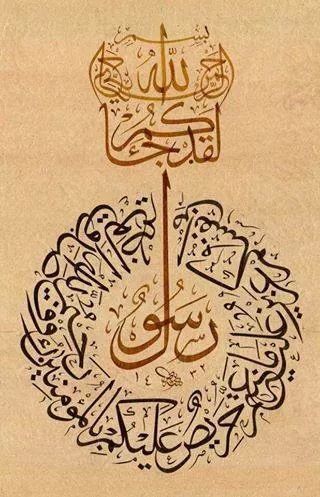 بسم الله الرحمن الرحيم
لقد جاءكم
رسول
من أنفسكم عزيز عليه ما عنتم حريص عليكم بالمؤمنين رؤوف رحيم
١٤٣٢